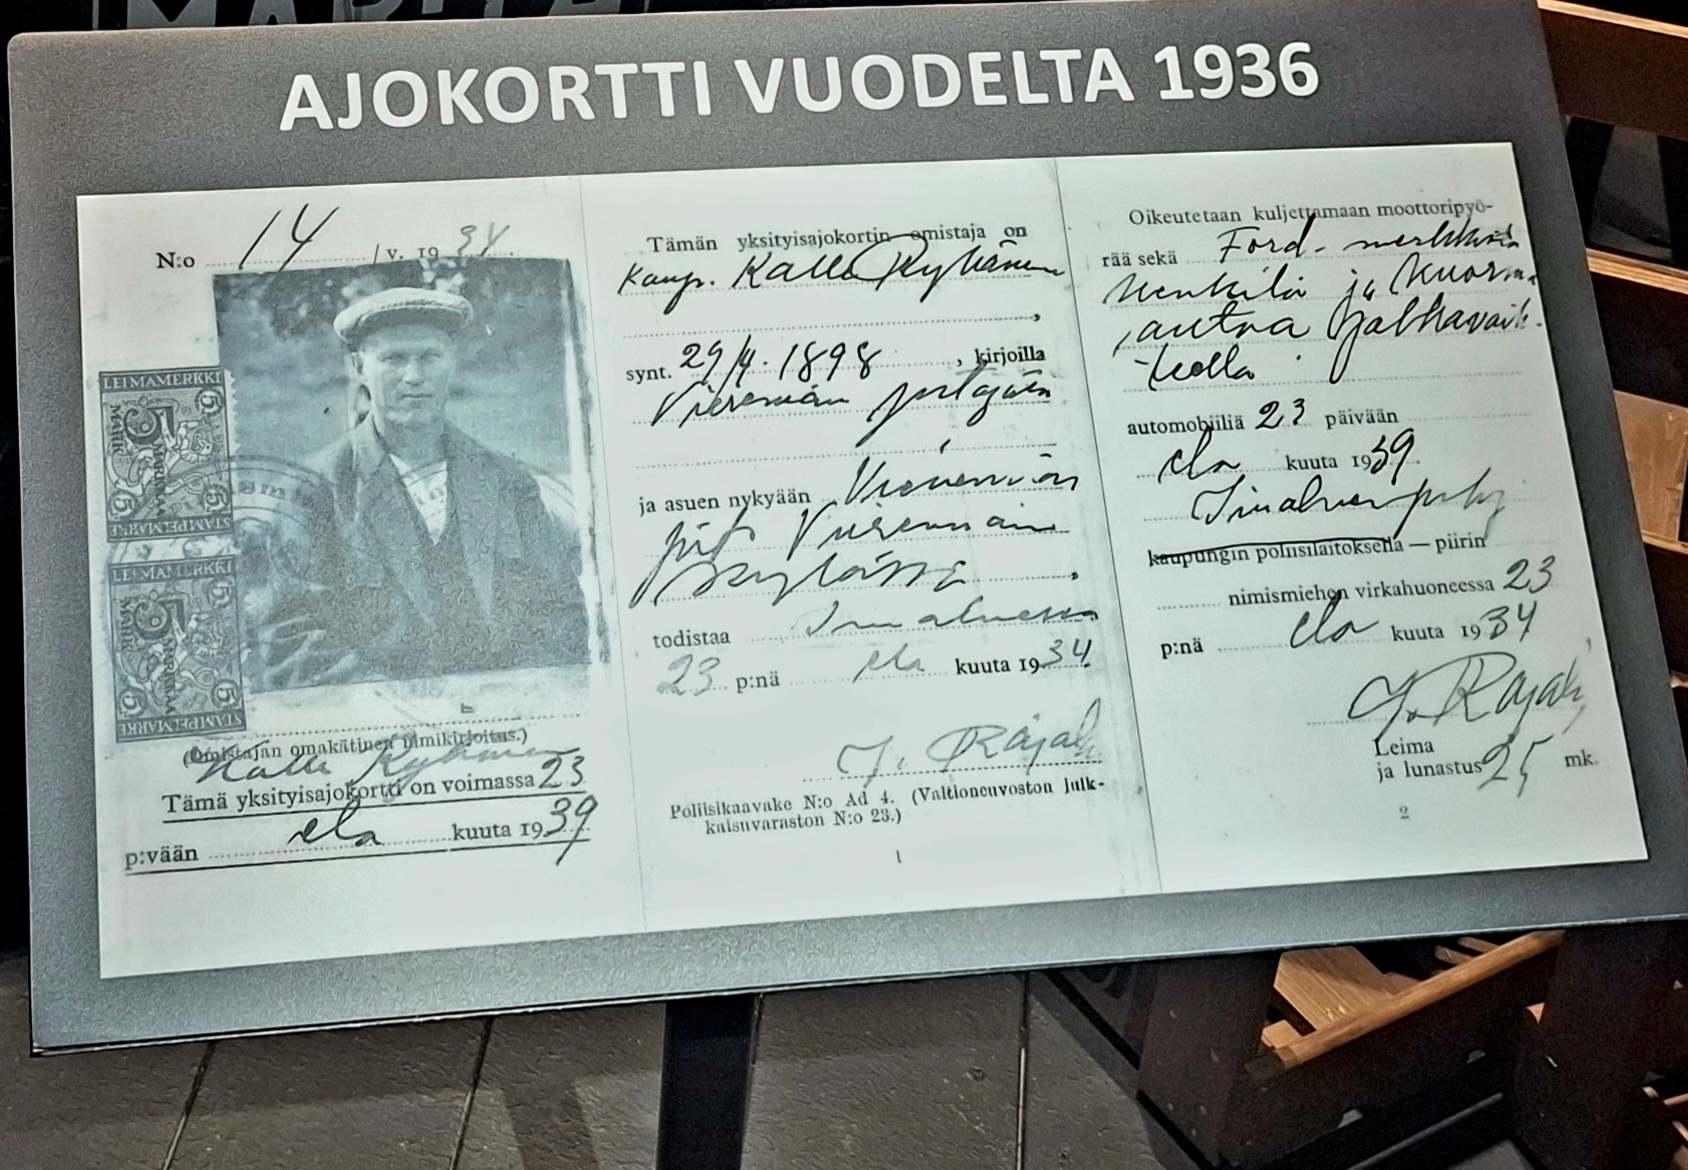 AJOKORTTI VUODELTA 1936
N:o 14 / v. 1934
LEIMAMERKKI
5 MARKKAA
STAMPELMÄRKE
LEIMAMERKKI
5 MARKKAA
STAMPELMÄRKE
(Omistajan omakätinen nimikirjoitus.)
Kalle Ryhänen
Tämä yksityisajokortti on voimassa 23
p:vään elo kuuta 1939
Tämän yksityisajokortin omistaja on
Kaup. Kalle Ryhänen
synt. 29/4. 1898, kirjoilla
Vieremän pitäjän
ja asuen nykyään Vieremän
Vieremän
kylässä.
todistaa Iisalmessa
23 p:nä elo kuuta 1934.
J. Rajala
Poliisikaavake N:o Ad 4. (Valtioneuvoston julk-
kaisuvaraston N:o 23.)
1
Oikeutetaan kuljettamaan moottoripyö-
rää sekä Ford-merkkistä
henkilö ja kuorma
autoa jalkavaih-
teella
automobiiliä 23 päivään
elo kuuta 1939
Iisalmen
kaupungin poliisilaitoksella — piirin
nimismiehen virkahuoneessa 23
p:nä elo kuuta 1934
J. Rajala
Leima
ja lunastus 25 mk.
2